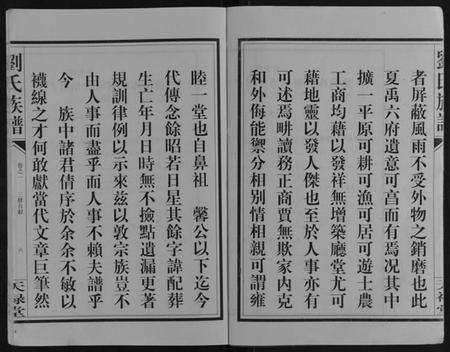 劉氏族譜
者屏蔽風雨不受外物之銷磨也此
夏禹六府遺意可啻而有焉况其中
擴一平原可耕可漁可居可遊士農
工商均藉以發祥無增築廳堂尤可
藉地靈以發人傑也至於人事亦有
可述焉畊讀務正商賈無欺家內克
和外侮能禦分相别情相親可謂雍
睦一堂也自鼻祖 馨公以下迄今
代傳念餘昭若日星其餘字諱配葬
生亡年月日時無不撿點遺漏更著
規訓律例以示來兹以敦宗族豈不
由人事而盡乎而人事不賴夫譜乎
今 族中諸君倩序於余余不敏以
襪線之才何敢獻當代文章巨筆然
劉氏族譜
卷之一
六
天祿堂